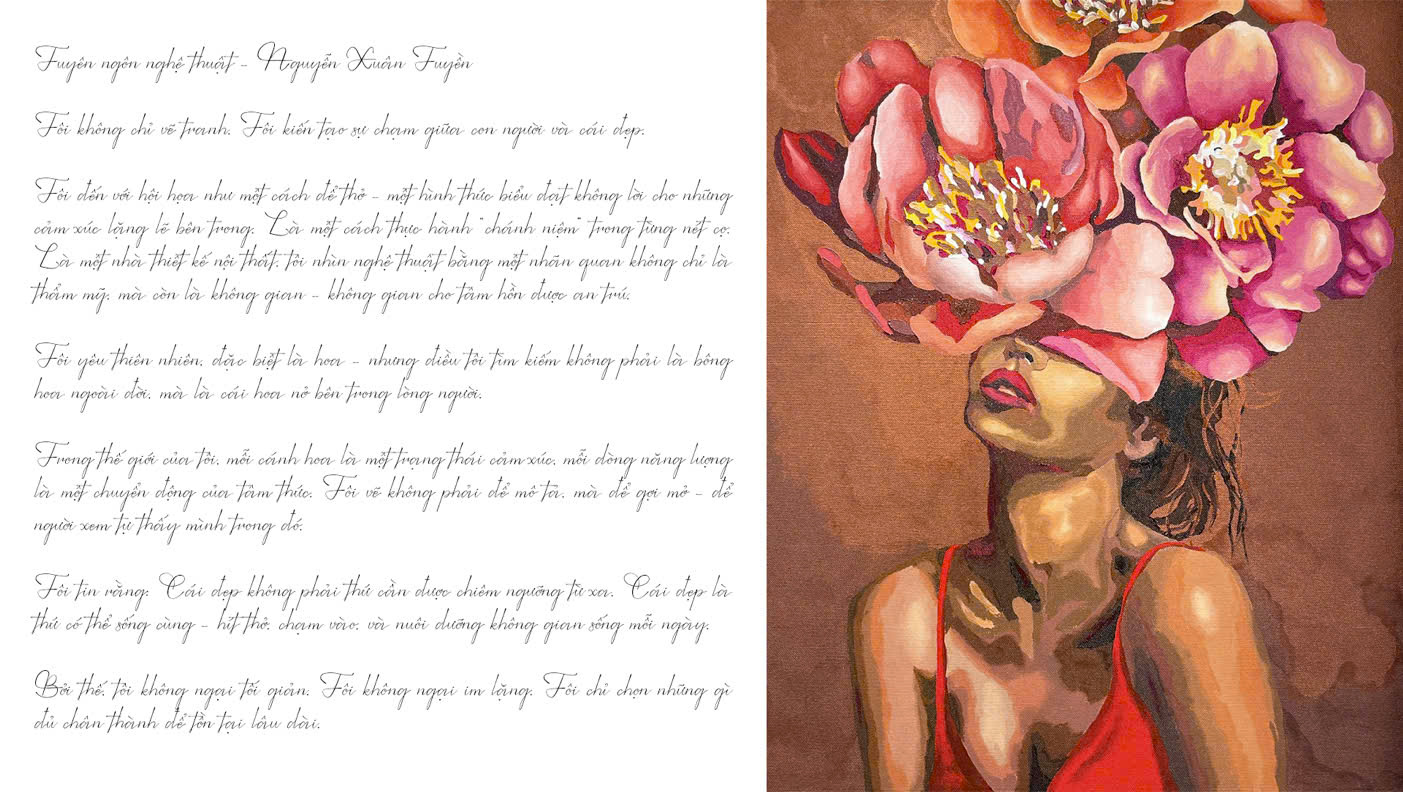 Tuyên ngôn nghệ thuật - Nguyễn Xuân Tuyền
Tôi không chỉ vẽ tranh. Tôi kiến tạo sự chạm giữa con người và cái đẹp.
Tôi đến với hội họa như một cách để thở - một hình thức biểu đạt không lời cho những
cảm xúc lặng lẽ bên trong. Là một cách thực hành "chánh niệm" trong từng nét cọ.
Là một nhà thiết kế nội thất, tôi nhìn nghệ thuật bằng một nhãn quan không chỉ là
thẩm mỹ, mà còn là không gian - không gian cho tâm hồn được an trú.
Tôi yêu thiên nhiên, đặc biệt là hoa - nhưng điều tôi tìm kiếm không phải là bông
hoa ngoài đời, mà là cái hoa nở bên trong lòng người.
Trong thế giới của tôi, mỗi cánh hoa là một trạng thái cảm xúc, mỗi dòng năng lượng
là một chuyển động của tâm thức. Tôi vẽ không phải để mô tả, mà để gợi mở - để
người xem tự thấy mình trong đó.
Tôi tin rằng: Cái đẹp không phải thứ cần được chiêm ngưỡng từ xa. Cái đẹp là
thứ có thể sống cùng - hít thở, chạm vào, và nuôi dưỡng không gian sống mỗi ngày.
Bởi thế, tôi không ngại tối giản. Tôi không ngại im lặng. Tôi chỉ chọn những gì
đủ chân thành để tồn tại lâu dài.